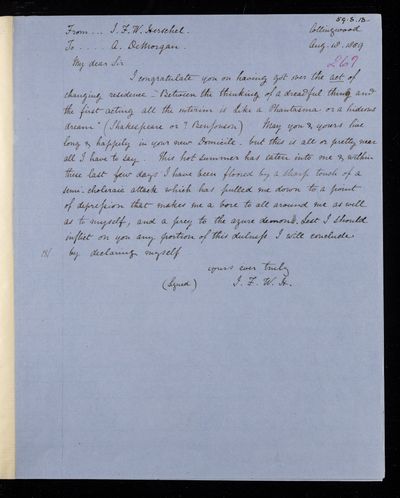 59.8.18
From ... J. F. W. Herschel. Collingwood
To ..... A. DeMorgan. Aug. 18. 1859
267
My dear Sir
I congratulate you on having got over the act of
changing residence - "Between the thinking of a dreadful thing and
the first acting all the interim is like a Phantasma or a hideous
dream" (Shakespeare or ? Ben Jonson) May you & yours live
long & happily in your new Domicile. but this is all or pretty near
all I have to say. This hot summer has eaten into me & within
these last few days I have been floored by a sharp touch of a
semi-choleraic attack which has pulled me down to a point
of depression that makes me a bore to all around me as well
as to myself, and a prey to the azure demons. Lest I should
inflict on you any portion of this dulness I will conclude
by declaring myself
yours ever truly
(Signed) J. F. W. H.